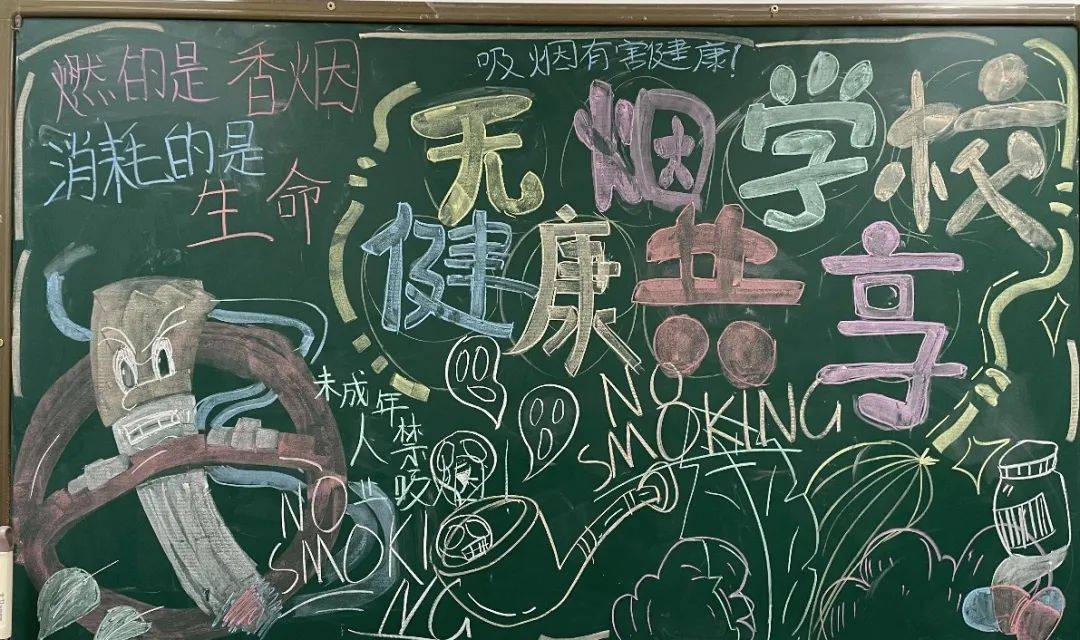 燃的是香烟
消耗的是
生命
吸烟有害健康!
无烟学校
健康共享
未成年
人禁
吸烟
NO
SMOKING
NO
SMOKI
NG